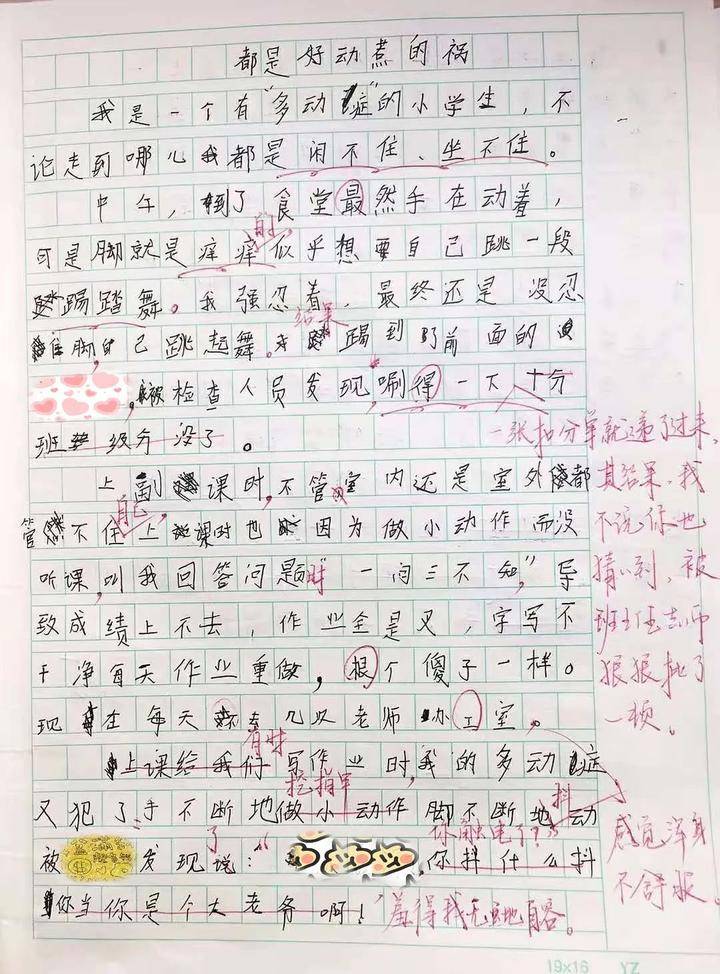 都是好动惹的祸
我是一个有"多动症"的小学生，不
论走到哪儿我都是闲不住、坐不住。
中午，到了食堂最然手在动着，
可是脚就是痒痒似乎想要自己跳一段
自
踢踏舞。我强忍着，最终还是没忍
住脚自己跳起舞。踢到了前面的
结果
，被检查人员发现，唰得一下十分
班级分没了。
一张扣分单就递了过来，
上副课时，不管室内还是室外都
其结果，我
管不住上课时也因为做小动作而没
自己
不说你也
听课，叫我回答问题时"一问三不知"，导
猜得到，被
致成绩上不去，作业全是叉，字写不
班主任老师
干净每天作业重做，根个傻子一样。
狠狠批了
一顿。
现在每天都去几次老师办工室。
上课给我们写作业时，我的多动症
有时
又犯了手不断地做小动作脚不断地动
挖指甲
抖
被发现说：
了
你触电了？
你抖什么抖
感觉浑身
不舒服。
你当你是个大老爷啊！
羞得我无地自容。
19×16 YZ